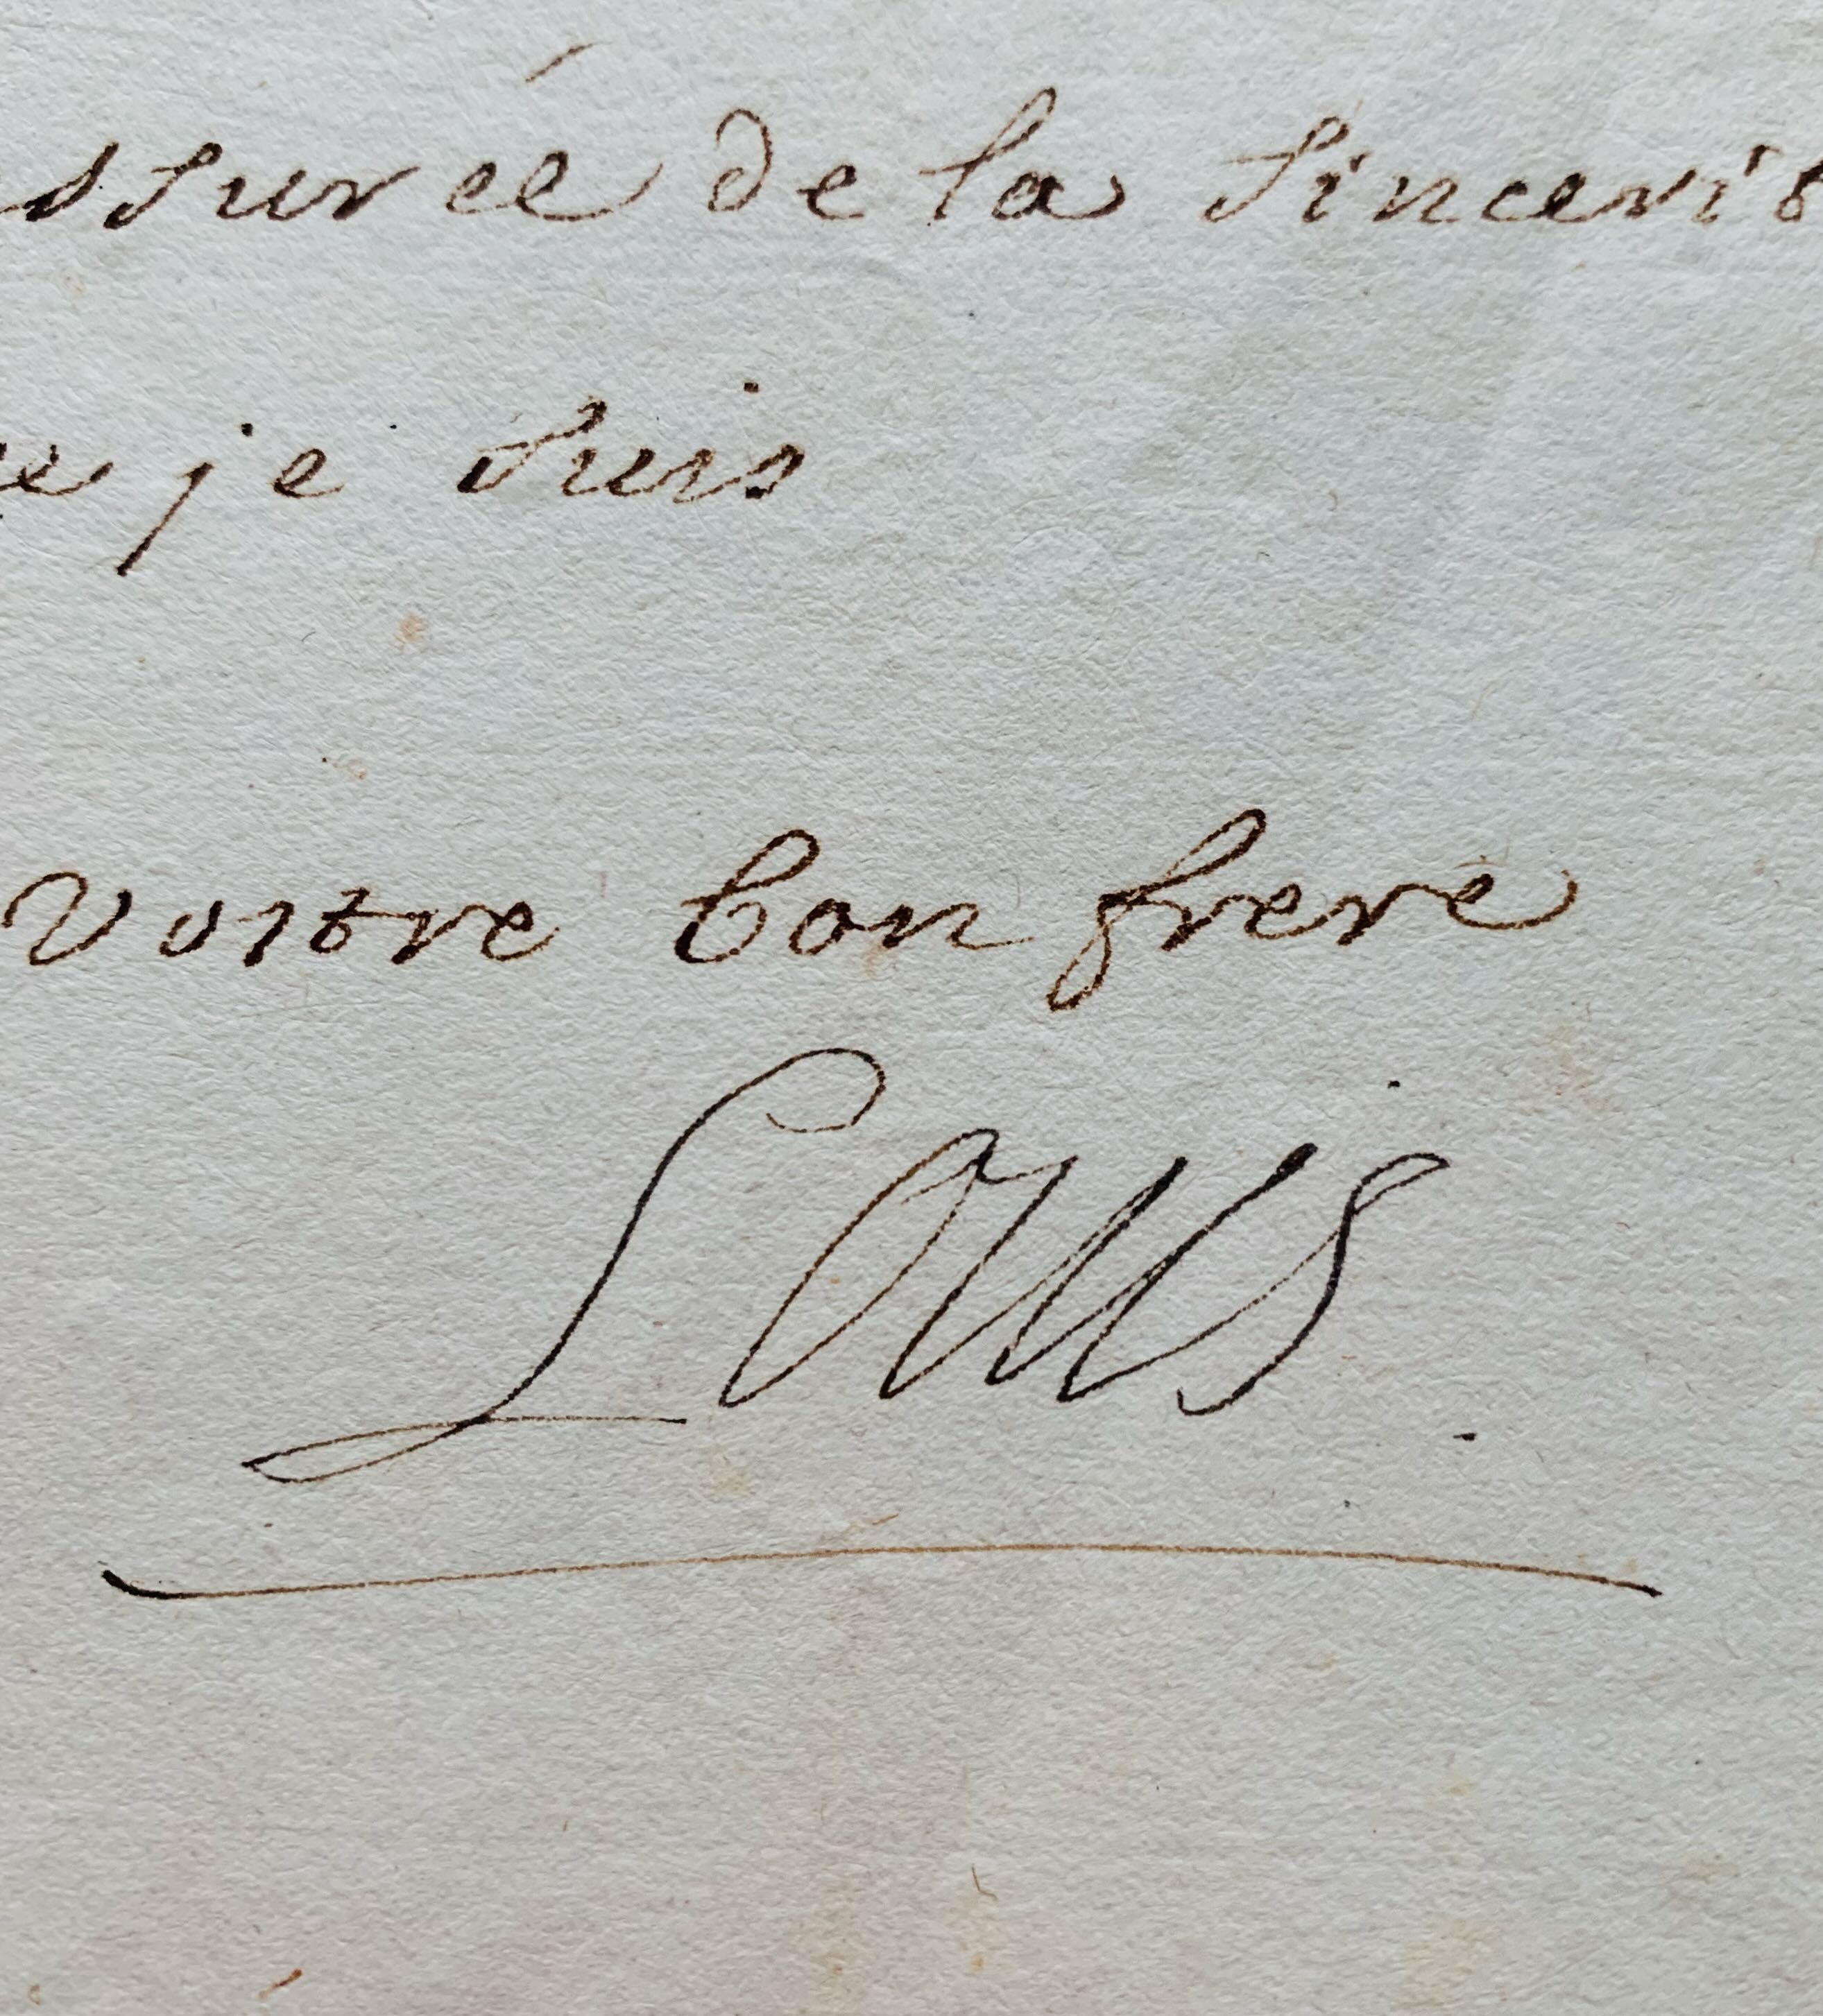 ssurée de la sincerit
e je suis
vostre bon frere
Louis